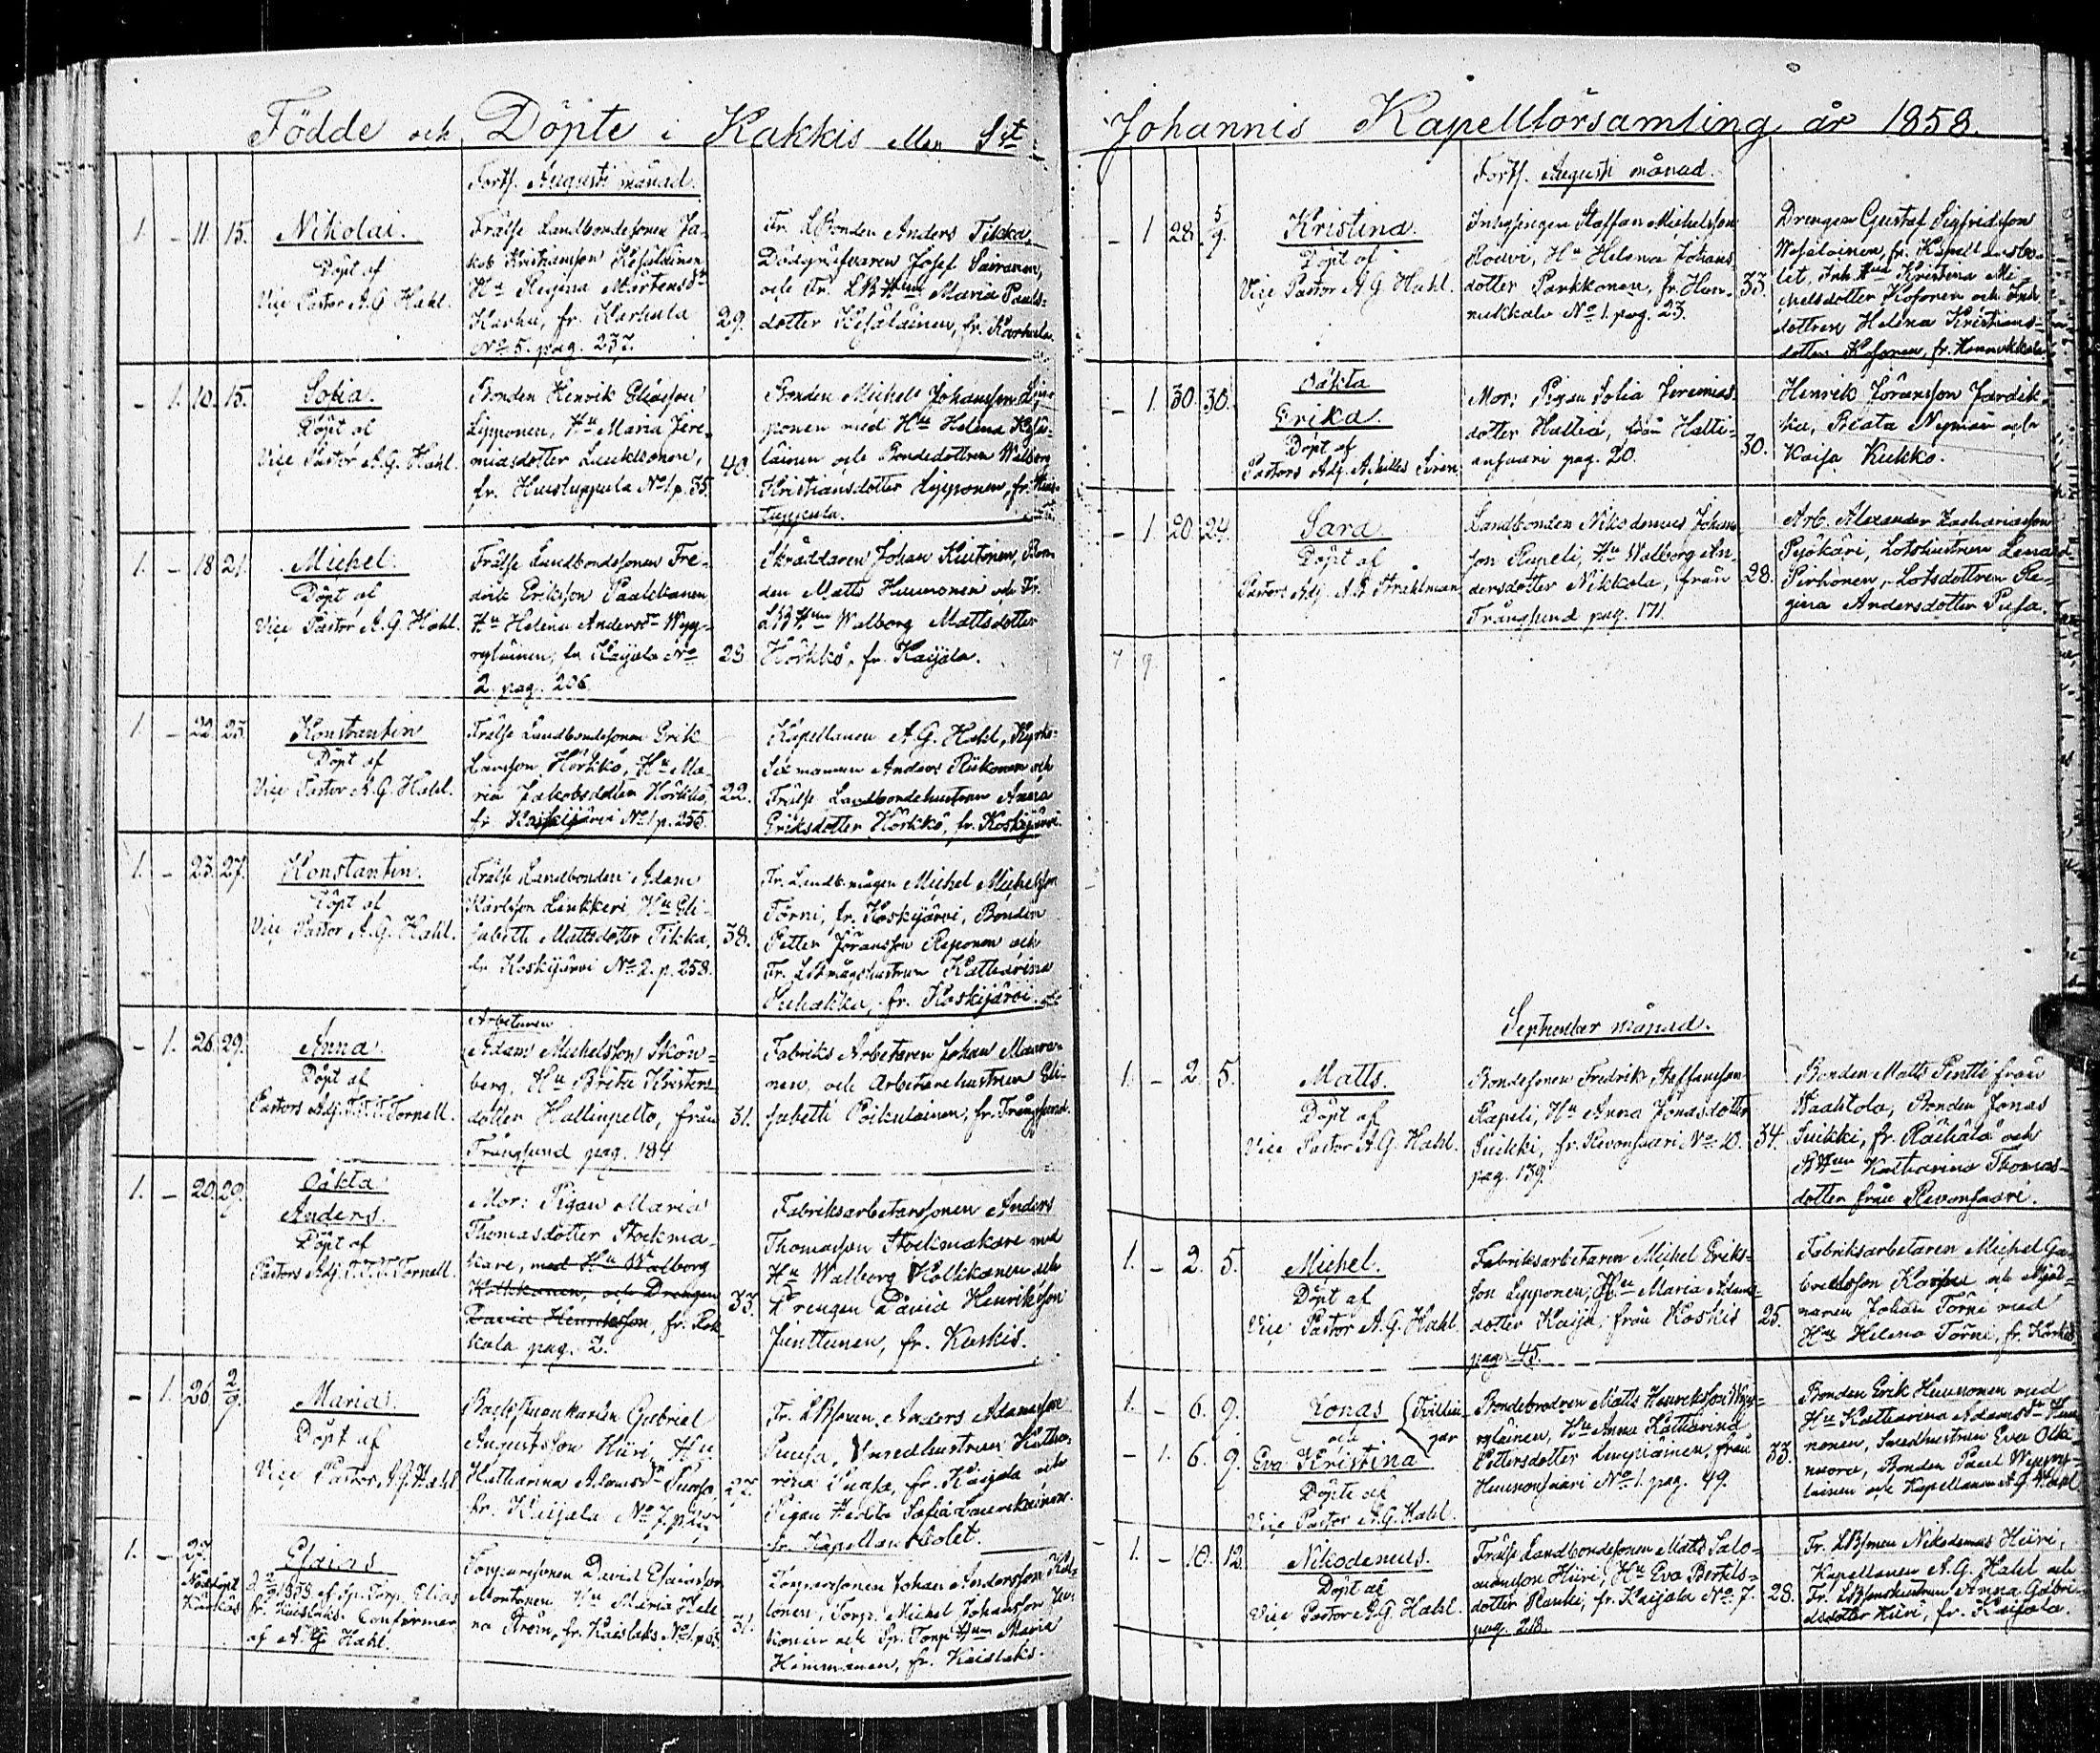 Födde och Döpte i Kakkis eller S:t
Forts. Augusti månad.
1. – 11. 15. Nikolai.
Döpt af
Vice Pastor A.G. Hahl.
Frälse Landbondesonen Ja-
kob Kristiansson Kesäläinen
Hu Regina Mårtensdr
Karhu, fr. Karhula
No 5. pag. 237.
29.
Fr. LBonden Anders Tikka,
Dödgräfvaren Josef Sairanen,
och Fr. LBHun Maria Pauls-
dotter Kesäläinen, fr. Karhula.
– 1. 10. 15. Sofia.
Döpt af
Vice Pastor A.G. Hahl.
Bonden Henrik Eliasson
Lypponen, Hu Maria Jere-
miasdotter Laukkonen,
fr. No 1 p. 35.
40.
Bonden Michel Johansson
med Hu Helena Kesä-
läinen och Bondedottren Walborg
Kristiansdotter Lypponen, fr.
1. – 18. 21. Michel.
Döpt af
Vice Pastor A.G. Hahl.
Frälse Landbondesonen Fre-
drik Eriksson Paakkanen
Hu Helena Andersdr Wep-
säläinen, fr. Kaijala No
2. pag. 206.
23.
Skräddaren Johan Kiutonen, Bon-
den Matts Huunonen och Fr.
LBHun Walborg Mattsdotter
Hörkkö, fr. Kaijala.
1. – 22. 23. Konstantin
Döpt af
Vice Pastor A.G. Hahl.
Frälse Landbondesonen Erik
Hörkkö, Hu Ma-
ria Jakobsdotter Hörkkö,
fr. Koskijärvi No 1 p. 255.
22.
Kapellanen A.G. Hahl, Kyrko-
Sexmannen Anders Riikonen och
Frälse Landbondehustrun Anna
Eriksdotter Hörkkö, fr. Koskijärvi.
1. – 23. 27. Konstantin.
Döpt af
Vice Pastor A.G. Hahl.
Frälse Landbonden Adam
Karlsson Linkkeri, Hu Eli-
sabeth Mattsdotter Tikka,
fr. Koskijärvi No 2. p. 258.
38.
Fr. Landb.mågen Michel Michelsson
Törni, fr. Koskijärvi, Bonden
Petter Jöransson Reponen och
Fr. LBmågshustrun Katharina
fr. Koskijärvi.
– 1. 26. 29. Anna.
Döpt af
Pastors Adj. T.T.T. Tornell.
Arbetaren
Adam Michelsson Skön-
berg, Hu Brita Kristers-
dotter Hallinpelto, från
Trångsund pag. 184
31.
Fabriks Arbetaren Johan Maura-
nen och Arbetarehustrun Eli-
sabeth Poikulainen, fr. Trångsund.
1. – 20. 29. Oäkta
Anders.
Döpt af
Pastors Adj. T.T.T. Tornell.
Mor: Pigan Maria
Thomasdotter Stockma-
kare, med Hu Walborg
Kolikanen, och Drengen
David Henriksson, fr. Rok-
kala pag. 2.
33.
Fabriksarbetarsonen Anders
Thomasson Stockmakare med
Hu Walborg Kolikanen och
Drengen David Henriksson
Junttunen, fr. Kuskis.
– 1. 26. 2/9. Maria.
Döpt af
Vice Pastor A.G. Hahl
Gabriel
Augustsson Hiiri, Hu
Katharina Adamsdr Puusa,
fr. Kaijala No 7.
27.
Fr. LBsonen Anders Adamsson
Puusa, Smedhustrun Katha-
rina Puusa, fr. Kaijala och
Pigan Hedda Sofia
fr. Kapellansbolet.
1. – 27. Esaias
Nöddöpt
2/9 1858 af Sp. Torp. Elias
fr. Kaislaks. Confirmer.
af A.G. Hahl.
Torparesonen David Esaiasson
Montonen, Hu Maria Hele-
na Ström, fr. Kaislaks No 1. p.
31.
Torparesonen Johan Andersson
Torp. Michel Johansson
och Sp. Torp. Hun Maria
Himmanen, fr. Kaislaks.
Johannis Kapellförsamling år 1858.
Forts. Augusti månad.
– 1 28. 5/9. Kristina.
Döpt af
Vice Pastor A.G. Hahl.
Inhysingen Staffan Michelsson
Rouvi, Hu Helena Johans-
dotter Parkkonen, fr. Han-
nukkala No 1. pag. 23.
33.
Drengen Gustaf Sigfridsson
Wesalainen, fr. Kapellansbo-
let, Inh. Hun Kristina Mi-
chelsdotter Kosonen och Inh.
dottren Helena Kristians-
dotter Kosonen, fr. Hannukkala
– 1. 30. 30. Oäkta
Erika.
Döpt af
Pastors Adj. Achilles Siren
Mor: Pigan Sofia Jeremias-
dotter Hattia, från Hatti-
ansaari pag. 20.
30.
Henrik Jöransson
Beata Nyman och
Kaisa Kukko.
– 1. 20. 24. Sara
Döpt af
Pastors Adj. A.A. Strahlman
Landbonden Nikodemus Johans-
son Rapeli, Hu Walborg An-
dersdotter Nikkola, från
Trångsund pag. 171.
28.
Arb. Alexander Zachariasson
Pyökäri, Lotshustrun Lena
Pirhonen, Lotsdottren Re-
gina Andersdotter Pusa.
7 9.
September månad.
1. – 2. 5. Matts.
Döpt af
Vice Pastor A.G. Hahl.
Bondesonen Fredrik Staffansson
Rapeli, Hu Anna Jonasdotter
Suikki, fr. Revonsaari No 10.
pag. 139.
34.
Bonden Matts Pentti från
Waahtola, Bonden Jonas
Suikki, fr. Räihälä och
BHun Katharina Thomas-
dotter från Revonsaari.
1. – 2. 5. Michel.
Döpt af
Vice Pastor A.G. Hahl.
Fabriksarbetaren Michel Eriks-
son Lypponen, Hu Maria Adams-
dotter Kaipi, från Koskis
pag. 45.
25.
Fabriksarbetaren Michel Ga-
brielsson och Mjöl-
naren Johan Törni med
Hu Helena Törni, fr. Koskis
1. – 6. 9. Jonas (Tvillin-
och gar
– 1. 6. 9. Eva Kristina
Döpte af
Vice Pastor A.G. Hahl.
Bondebrodren Matts Henriksson Wep-
säläinen, Hu Anna Katharina
Pettersdotter från
Huunonsaari No 1. pag. 49.
33.
Bonden Erik Huunonen med
Hu Katharina Adamsdr Huu-
nonen, Smedhustrun Eva Olki-
nuora, Bonden Paul Wepsä-
läinen och Kapellanen A.G. Hahl
– 1. – 10. 12. Nikodemus.
Döpt af
Vice Pastor A.G. Hahl.
Frälse Landbondesonen Matts Salo-
monsson Hiiri, Hu Eva Bertils-
dotter Hanki, fr. Kaijala No 7.
pag. 218.
28.
Fr. LBsonen Nikodemus Hiiri,
Kapellanen A.G. Hahl och
Fr. LBsonhustrun Anna Gabri-
elsdotter Hiiri, fr. Kaijala.